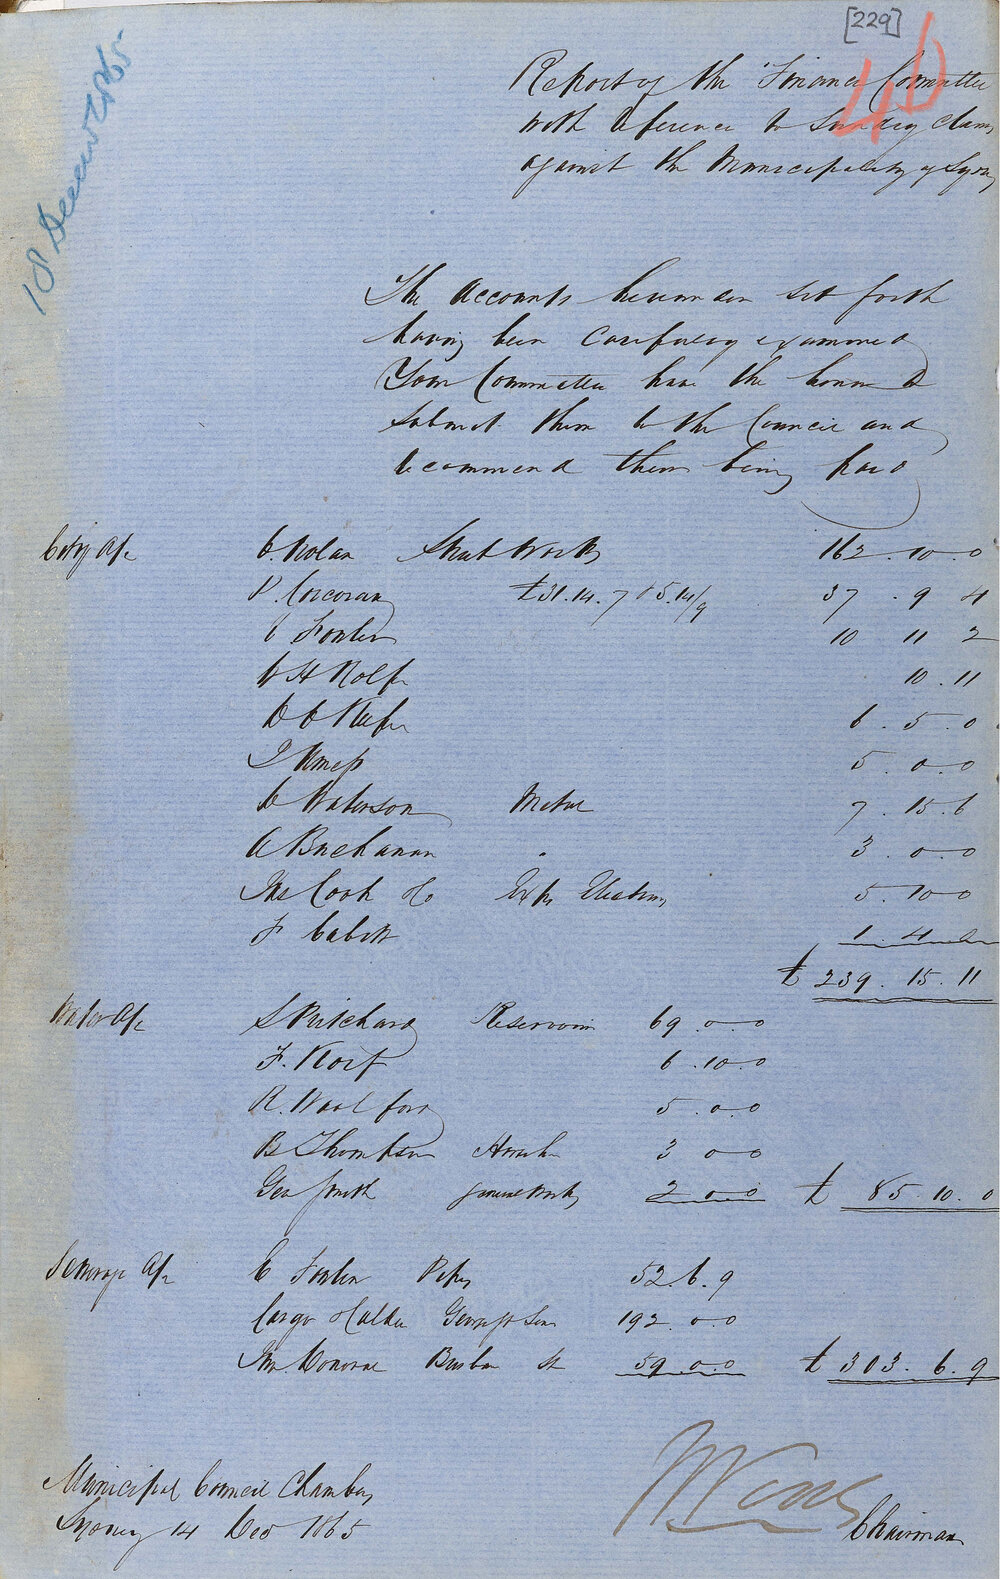 [229]
46
18 December 65
Report of the Finance Committee
with reference to Sundry Claims
against the Municipality of Sydney
The Accounts hereunder set forth
having been carefully examined
Your Committee have the honor to
submit them to the Council and
recommend them being paid
City A/c
C. Nolan Street Works 162 . 10 . 0
P. Corcoran £31.14.7 + 5.14/9 37 . 9 4
C Fowler 10 11 2
W H Rolfe 10 . 11
6 . 5 . 0
5 . 0 . 0
Waterson Metal 7 . 15 . 6
A Buchanan " 3 . 0 . 0
Jas Cook & Co Exps Elections 5 . 10 0
F 1 . 4
£ 239 . 15 . 11
Water A/c
S Pritchard Reservoir 69 . 0 . 0
F. 6 . 10 . 0
R. Woolford 5 . 0 . 0
B Thompson 3 0 0
Geo Smith General Works 2 0 0 £ 85 . 10 . 0
Sewerage A/c
C Fowler Pipes 52 . 6 . 9
George St Sewer 192 . 0 . 0
Jno Donovan St 59 0 . 0 £ 303 . 6 . 9
Municipal Council Chambers
Sydney 14 Dec 1865
Chairman